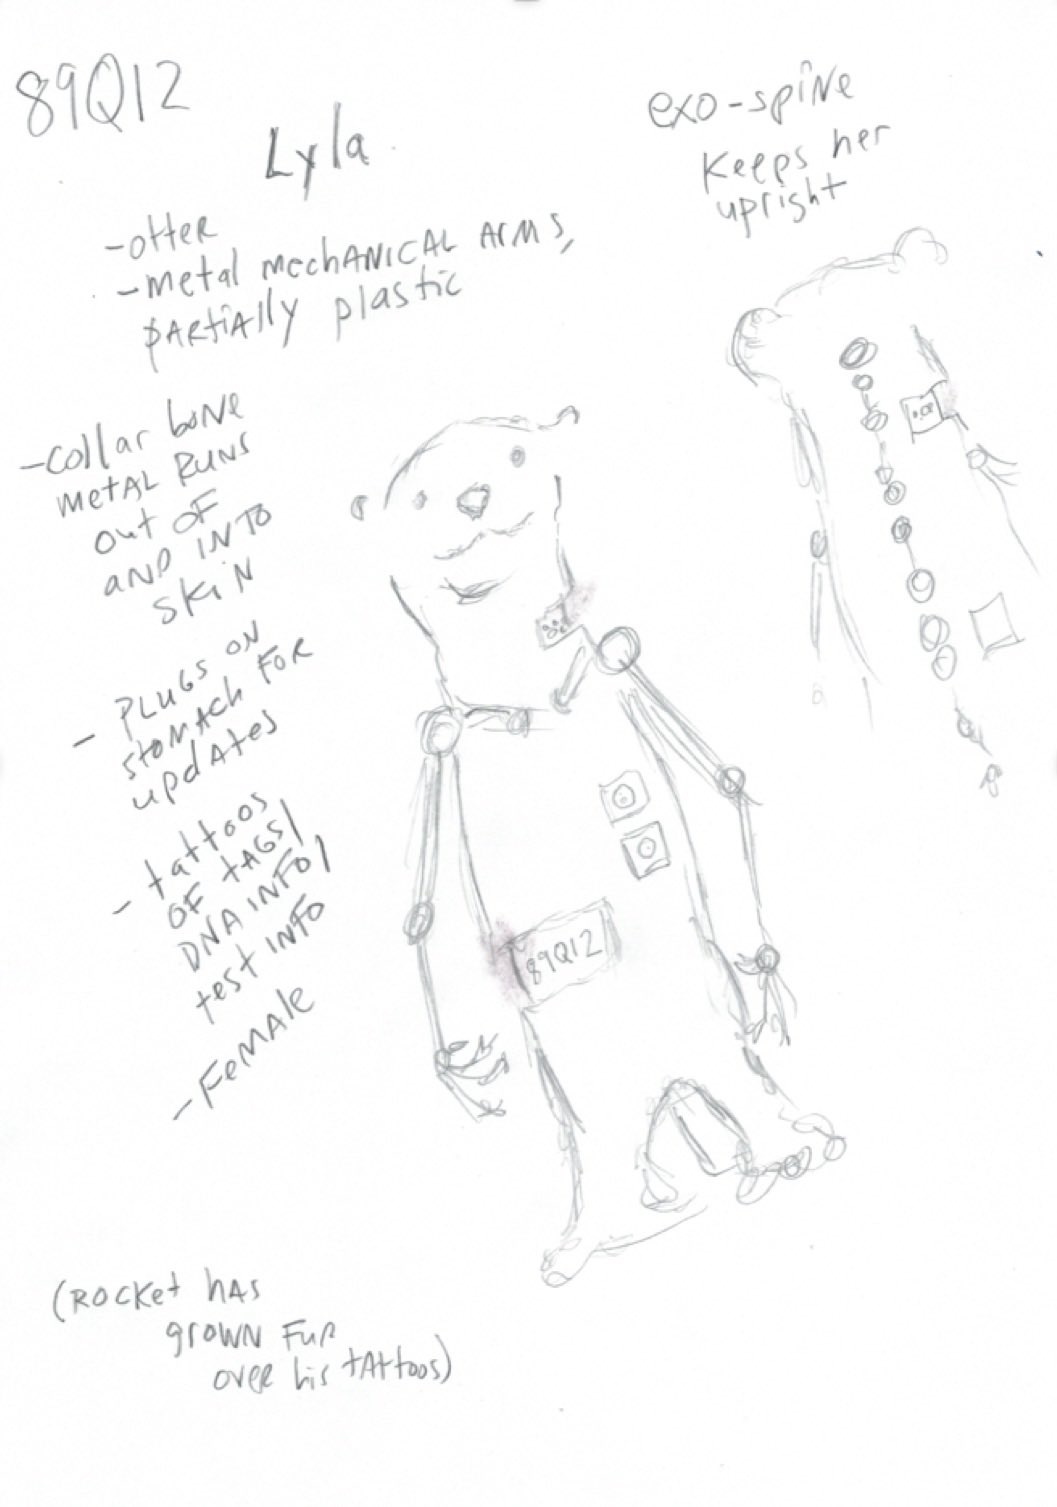 89Q12
Lyla
-otter
-metal mechanical arms,
partially plastic
exo-spine
keeps her
upright
-collar bone
metal runs
out of
and into
skin
- plugs on
stomach for
updates
- tattoos
of tags/
DNA info/
test info
-Female
89Q12
(Rocket has
grown fur
over his tattoos)